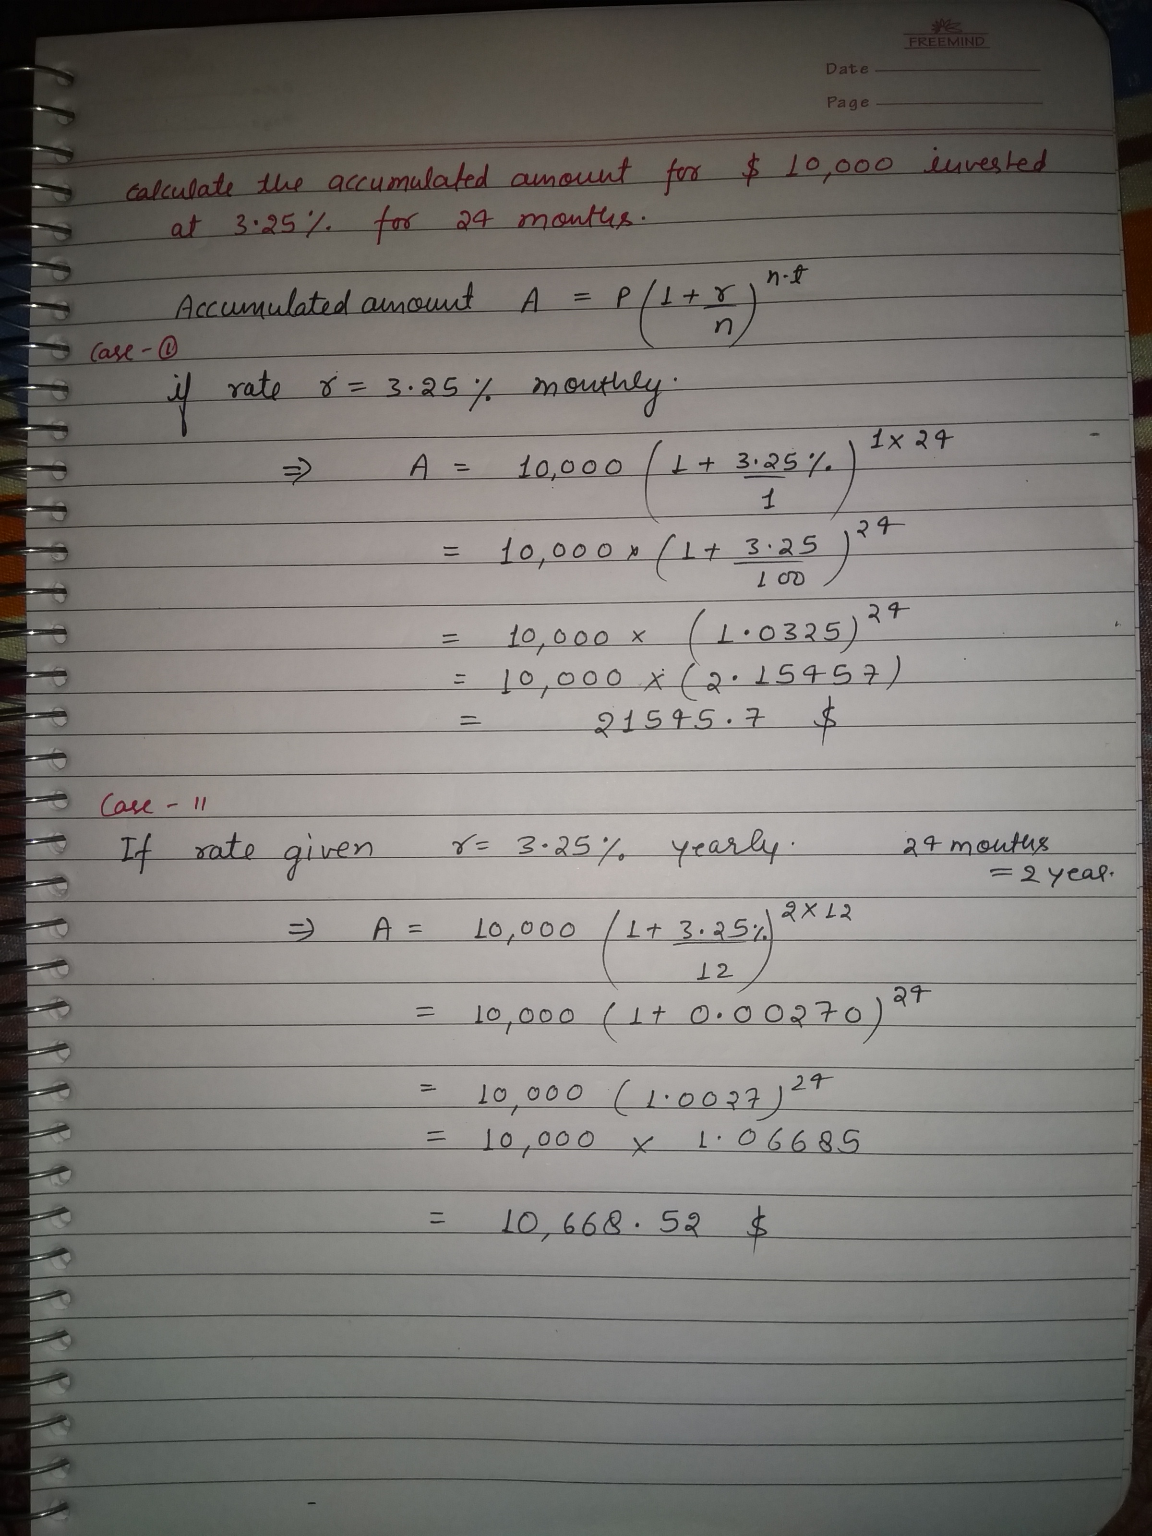 FREEMIND
Date
Page
Calculate the accumulated amount for $ 10,000 invested
at 3.25% for 24 months.
Accumulated amount A = P(1 + r/n)^n·t
Case - ①
if rate r = 3.25% monthly.
⇒ A = 10,000 (1 + 3.25%/1)^1×24
= 10,000 × (1 + 3.25/100)^24
= 10,000 × (1.0325)^24
= 10,000 × (2.15457)
= 21545.7 $
Case - II
If rate given r = 3.25% yearly. 24 months
= 2 year.
⇒ A = 10,000 (1 + 3.25%/12)^2×12
= 10,000 (1 + 0.00270)^24
= 10,000 (1.0027)^24
= 10,000 × 1.06685
= 10,668.52 $